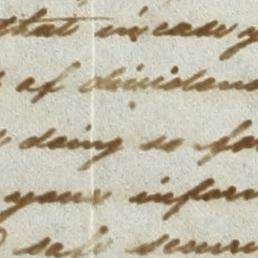 that in case y
of dividend
doing so for
your inform
safe secur